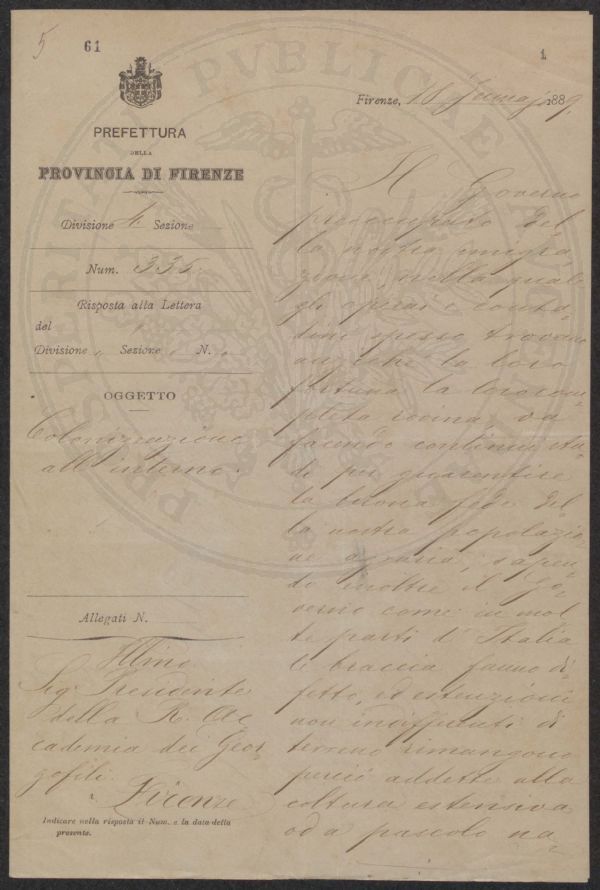 5
61
1
PREFETTURA
DELLA
PROVINCIA DI FIRENZE
Firenze, 16 Gennajo 1889.
Divisione 4. Sezione
Num. 335.
Risposta alla Lettera
del
Divisione Sezione N.
OGGETTO
Colonizzazione
all'interno.
Allegati N.
Illmo
Sig. Presidente
della R. Ac
cademia dei Geor
gofili.
Firenze
Indicare nella risposta il Num. e la data della
presente.
Il Governo
preoccupato del
la nostra emigra
zione, nella quale
gli operai e conta
dini spesso trovano
anziché la loro
fortuna la loro com
pleta rovina, va
facendo continui stu
di per guarentire
la buona fede del
la nostra popolazio
ne agraria; sapen
do inoltre il Go
verno come in mol
te parti d'Italia
le braccia fanno di
fetto, ed estenzioni
non indifferenti di
terreno rimangono
perciò addette alla
coltura estensiva
od a pascolo na
PROSPERITATI PUBLICAE